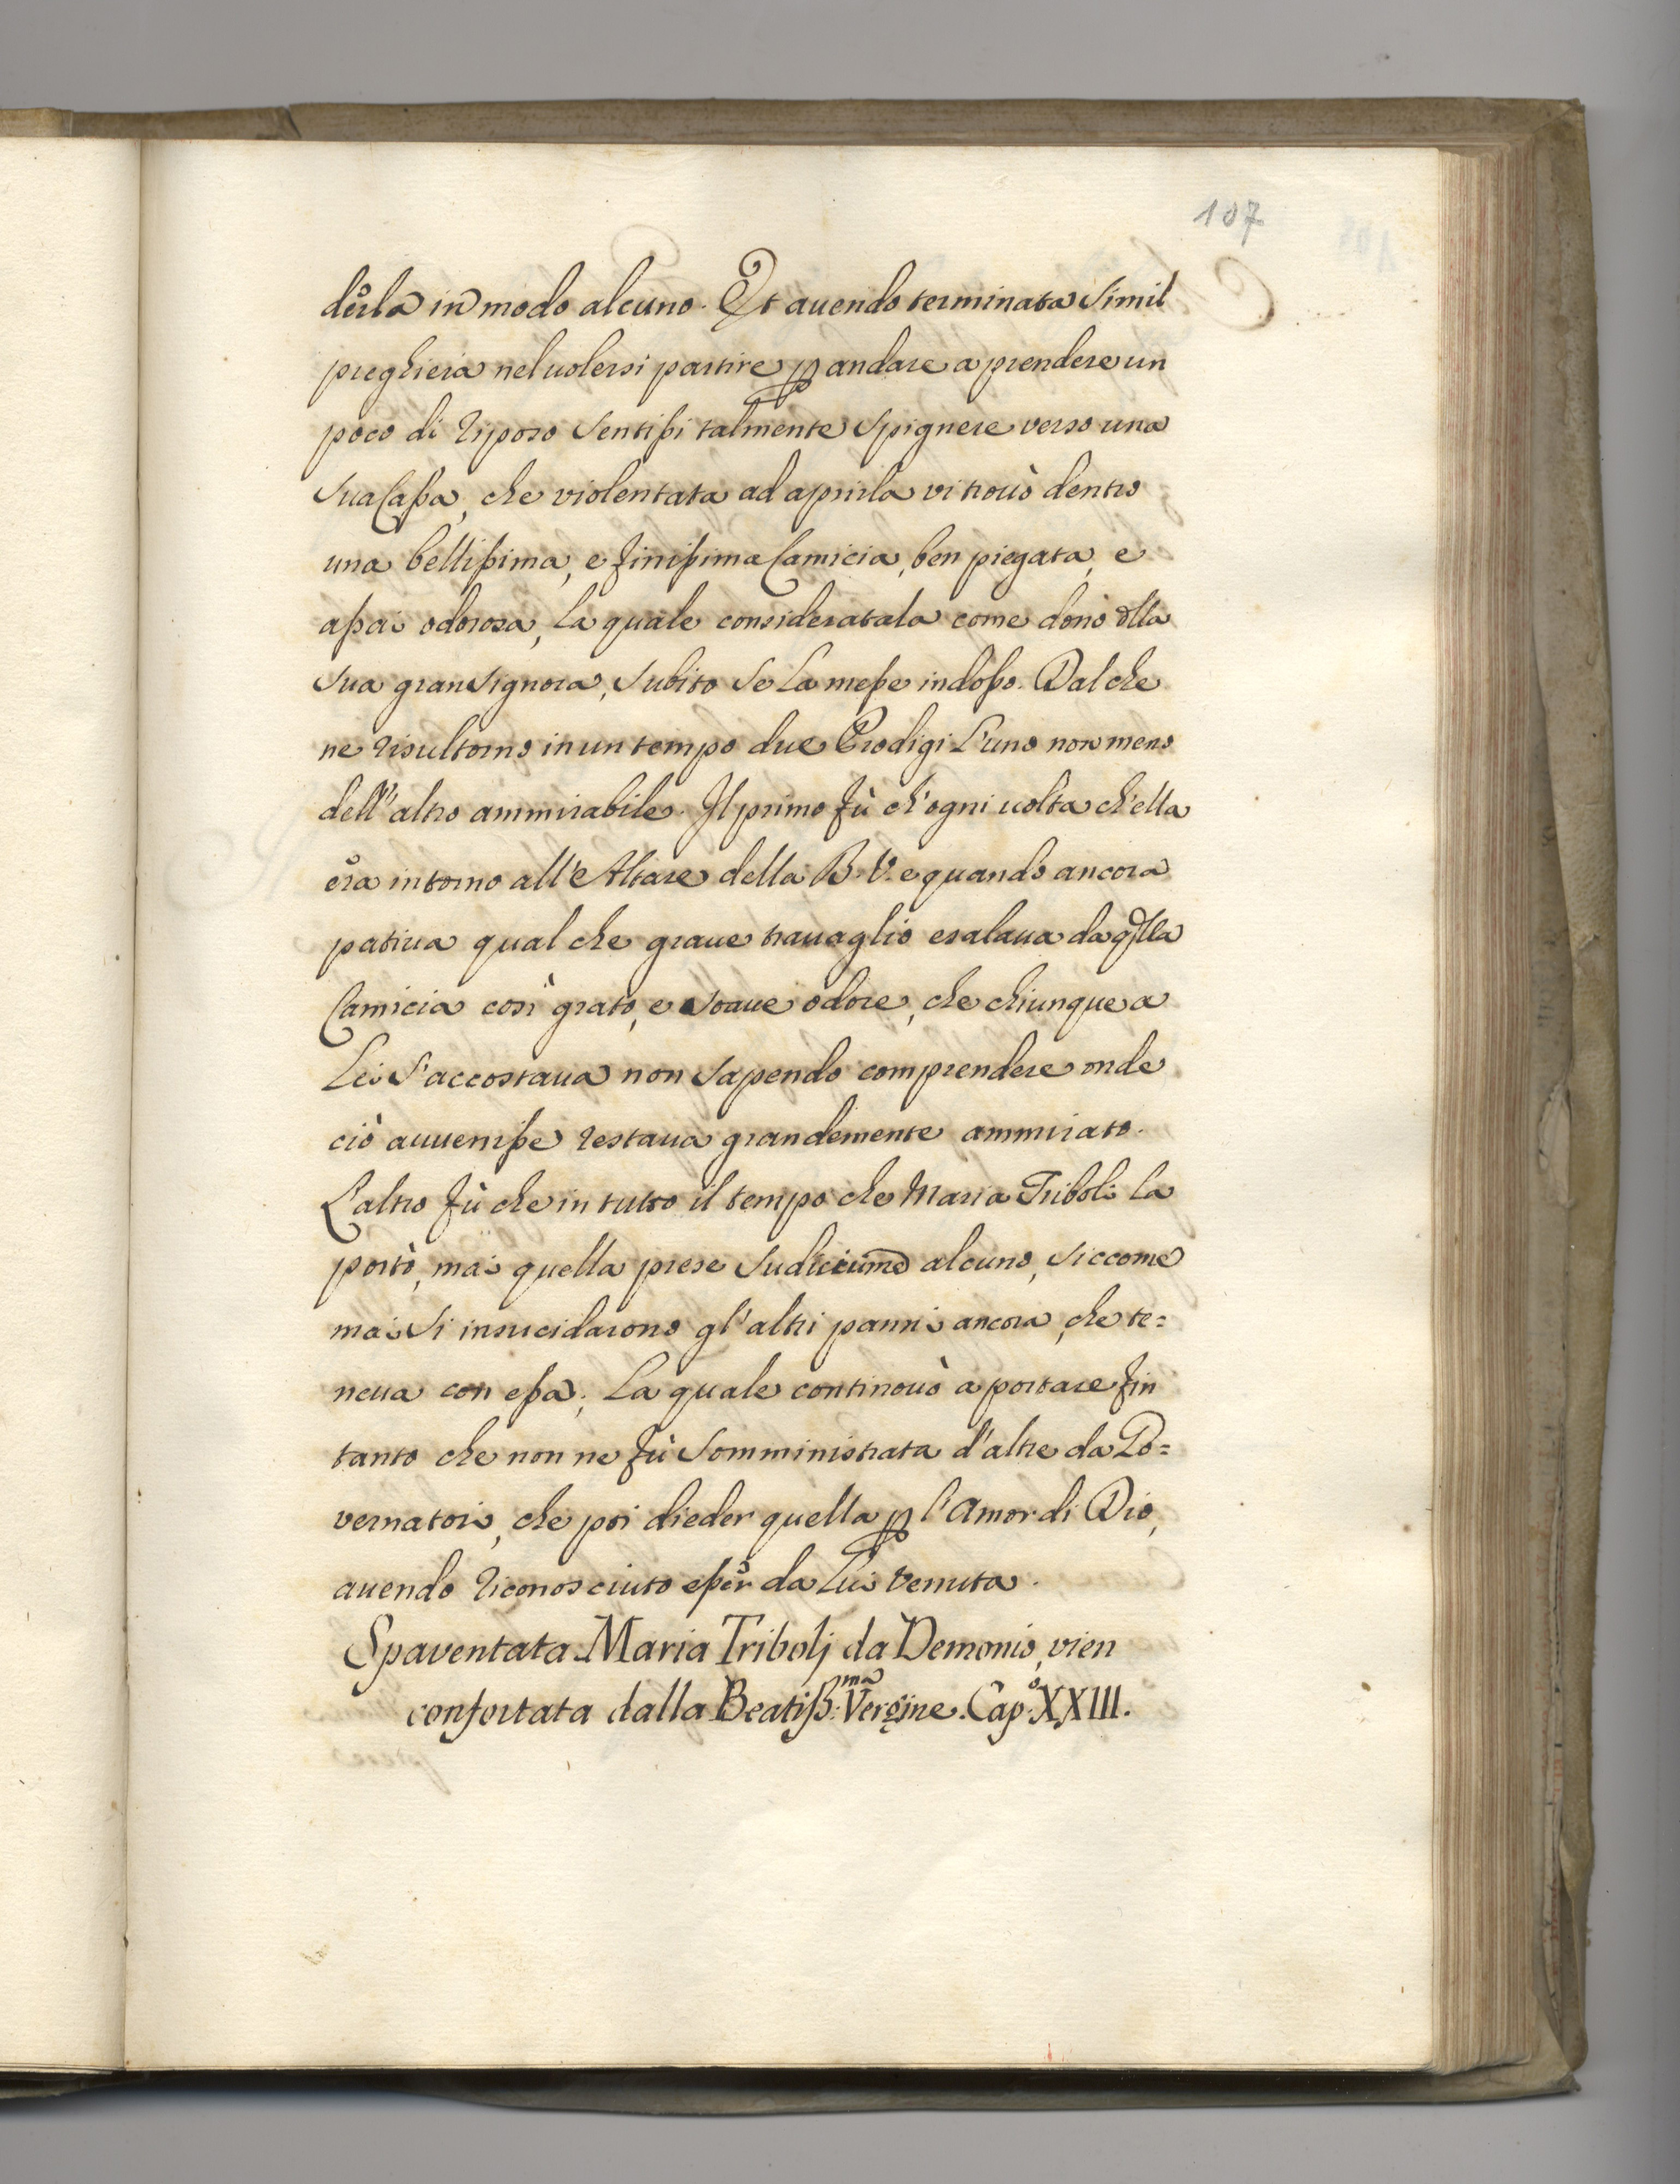 107
derla in modo alcuno. Et auendo terminata simil
preghiera nel uolersi partire p andare a prendere un
poco di riposo sentißi talmente spignere verso una
sua Caßa, che violentata ad aprirla vi trouò dentro
una bellißima, e finißima Camicia, ben piegata, e
aßai odorosa, la quale consideratala come dono dlla
sua gran Signora, subito se la meße indoßo. Dal che
ne risultorno in un tempo due Prodigi l'uno non meno
dell'altro ammirabile. Il primo fù ch'ogni uolta ch'ella
era intorno all'Altare della B. V. e quando ancora
patiua qual che graue trauaglio esalaua da qlla
Camicia così grato, e soaue odore, che chiunque a
Lei s'accostaua non sapendo comprendere onde
ciò auueniße restaua grandemente ammirato.
L'altro fù che in tutto il tempo che Maria Triboli la
portò, mai quella prese sudiciume alcuno, siccome
mai si insucidarono gl'altri panni ancora, che te=
neua con eßa; La quale continouò a portare fin
tanto che non ne fù somministrata d'altre da Go=
vernatori, che poi dieder quella p l'Amor di Dio,
auendo riconosciuto eßer da Lui venuta.
Spaventata Maria Tribolj da Demonio, vien
confortata dalla Beatiß:ma Vergine. Cap:o XXIII.